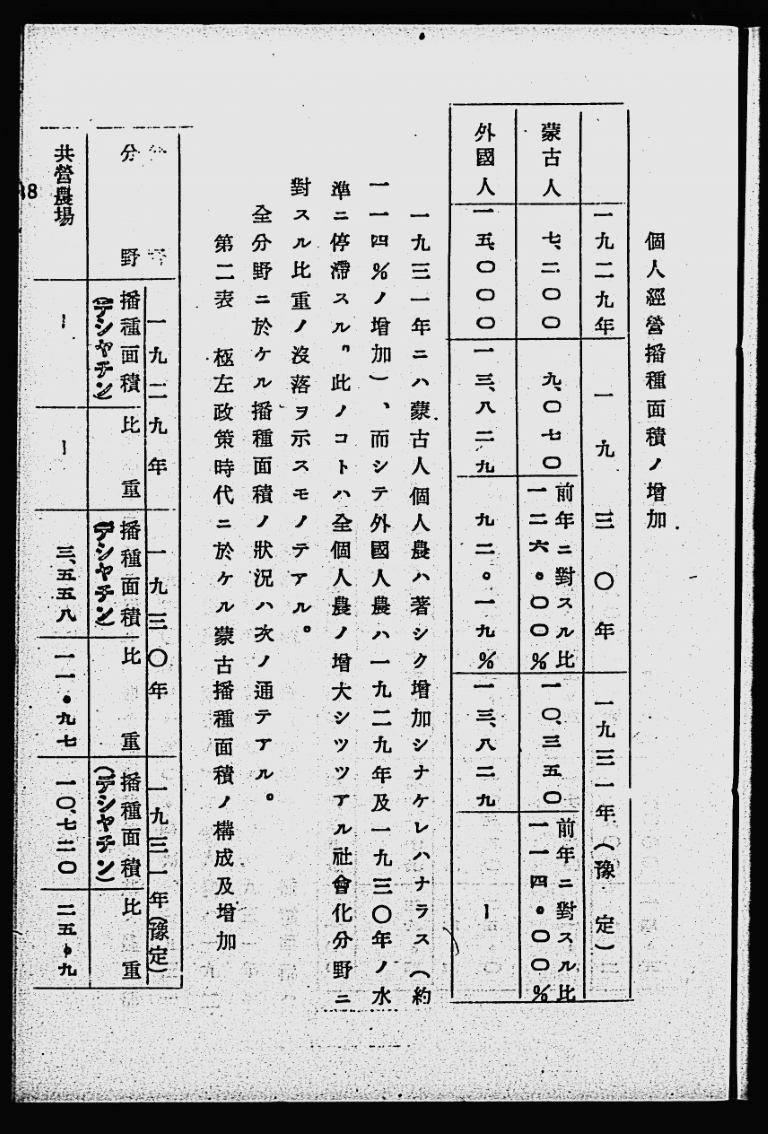 個人經營播種面積ノ增加
一九二九年 一九三〇年 一九三一年(豫定)
前年ニ對スル比 前年ニ對スル比
蒙古人 七、二〇〇 九、〇七〇 一二六。〇〇% 一〇、三五〇 一一四。〇〇%
外國人 一五、〇〇〇 一三、八二九 九二。一九% 一三、八二九 ー
一九三一年ニハ蒙古人個人農ハ著シク增加シナケレハナラス(約
一一四%ノ增加)、而シテ外國人農ハ一九二九年及一九三〇年ノ水
準ニ停滯スル〃此ノコトハ全個人農ノ增大シツツアル社會化分野ニ
對スル比重ノ沒落ヲ示スモノテアル。
全分野ニ於ケル播種面積ノ狀況ハ次ノ通テアル。
第二表 極左政策時代ニ於ケル蒙古播種面積ノ構成及增加
分野 一九二九年 一九三〇年 一九三一年(豫定)
播種面積(デシヤチン) 比重 播種面積(デシヤチン) 比重 播種面積(デシヤチン) 比重
共營農場 ー ー 三、五五八 一一・九七 一〇、七二〇 二五・九